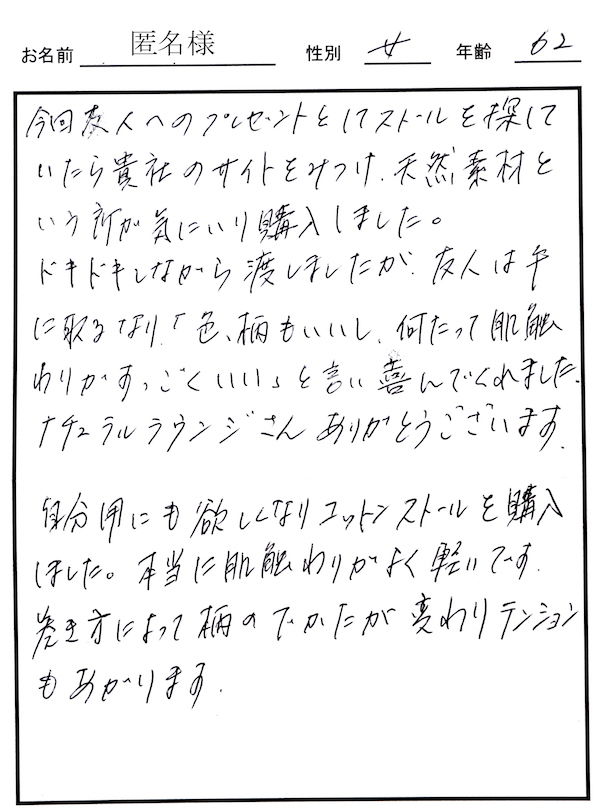 お名前 匿名様 性別 女 年齢 62
今回友人へのプレゼントとしてストールを探して
いたら貴社のサイトをみつけ、天然素材と
いう所が気にいり購入しました。
ドキドキしながら渡しましたが、友人は手
に取るなり、「色、柄もいいし、何たって肌触
わりがすっごくいい」と言い喜んでくれました。
ナチュラルラウンジさんありがとうございます。
自分用にも欲しくなりコットンストールを購入
しました。本当に肌触わりがよく軽いです。
巻き方によって柄のでかたが変わりテンション
もあがります。